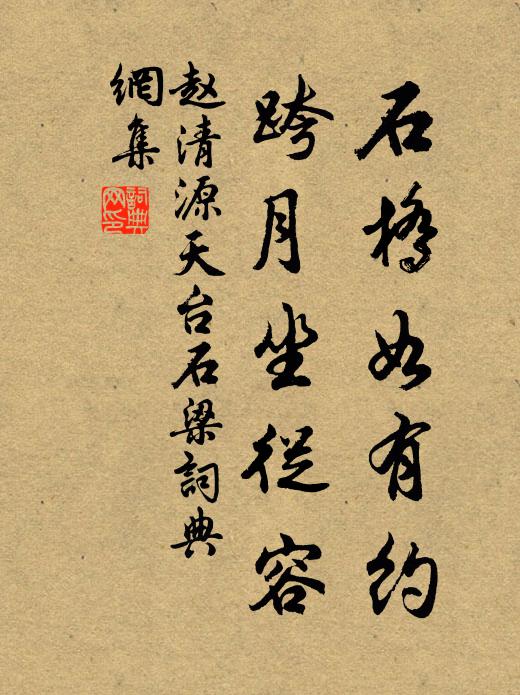 石橋如有約
跨月坐從容
赵清源天台石梁詞典
網集
詞典
网印